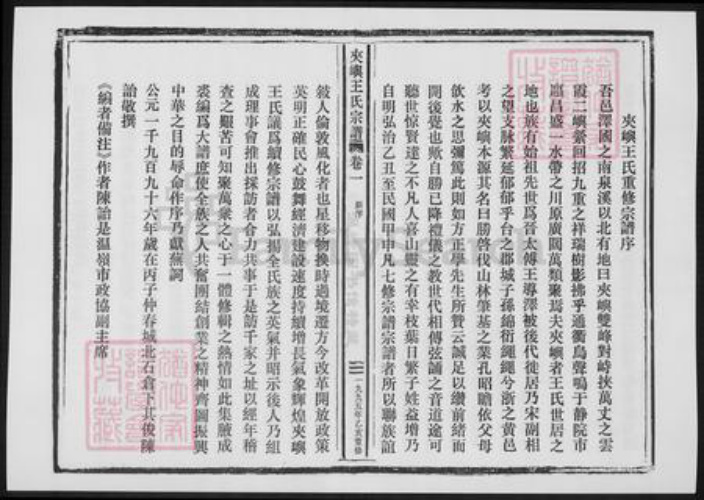 夾嶼王氏重修宗譜序
吾邑澤國之南泉溪以北有地曰夾嶼雙峰對峙挾萬丈之雲
霞二嶼縈回招九重之祥瑞樹影拂乎通衢鳥聲鳴于静院市
廛昌盛一水帶之川原廣闊萬類聚焉夫夾嶼者王氏世居之
地也族有始祖先世爲晉太傅王導澤被後代徙居乃宋副相
之望支脉繁延郁郁乎台之郡城子孫綿衍繩繩兮浙之黄邑
考以夾嶼本源其名曰勝啓伐山林肇基之業孔昭瞻依父母
飲水之思彌篤此則如方正學先生所贊云誠足以纘前緒而
開後覺也歟自勝已降禮儀之教世代相傳弦誦之音道途可
聽世惊賢達之不凡人喜山靈之有幸枝葉日繁子姓益增乃
自明弘治乙丑至民國甲申凡七修宗譜宗譜者所以聯族誼
夾嶼王氏宗譜 卷一
一九九五年乙亥重修
敍人倫敦風化者也星移物换時過境遷方今改革開放政策
英明正確民心鼓舞經濟建設速度持續增長氣象輝煌夾嶼
王氏議爲續修宗譜以弘揚全氏族之英氣并昭示後人乃組
成理事會推出採訪者合力共事于是訪千家之址以經年稽
查之艱苦可知聚萬衆之心于一體修輯之熱情如此集腋成
裘編爲大譜庶使全族之人共奮團結創業之精神齊圖振興
中華之目的辱命作序乃獻蕪詞
公元一千九百九十六年歲在丙子仲春城北石倉下其俊陳
詒敬撰
《編者備注》作者陳詒是温嶺市政協副主席